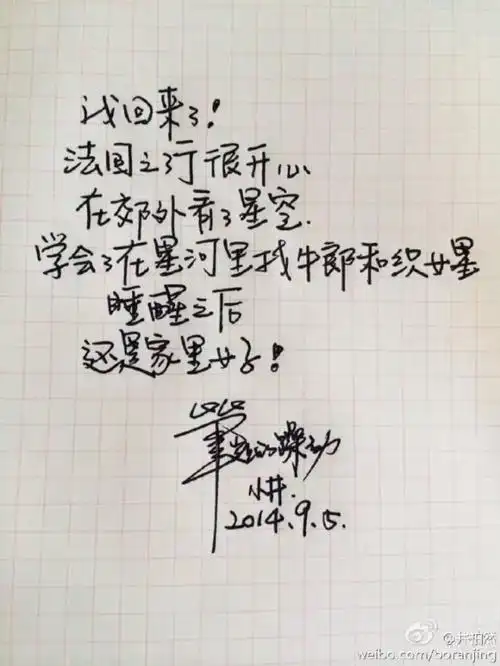 我回来了!
法国之行很开心
在郊外看了星空.
学会了在星河里找牛郎和织女星
睡醒之后
还是家里好!
笔迹的躁动
小井.
2014.9.5.
@井柏然
weibo.com/boranjing